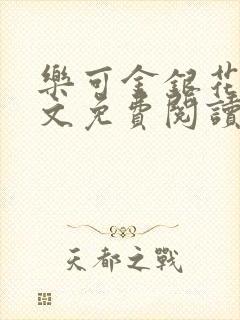 樂可金銀花
文免費閱讀
天都之戰